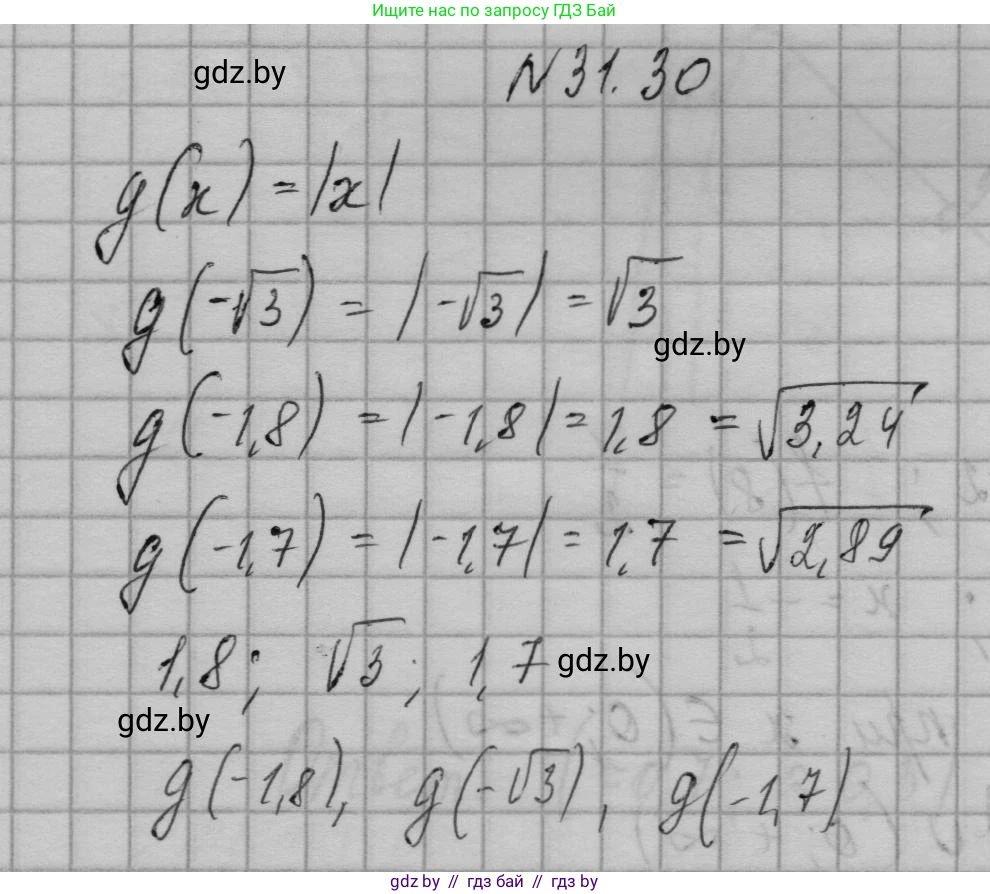 Ищите нас по запросу ГДЗ Бай
gdz.by
№31.30
g(x) = |x|
g(-√3) = |-√3| = √3
gdz.by
g(-1,8) = |-1,8| = 1,8 = √3,24
g(-1,7) = |-1,7| = 1,7 = √2,89
1,8; √3; 1,7
gdz.by
gdz.by
g(-1,8), g(-√3), g(-1,7)
gdz.by // гдз бай // гдз by